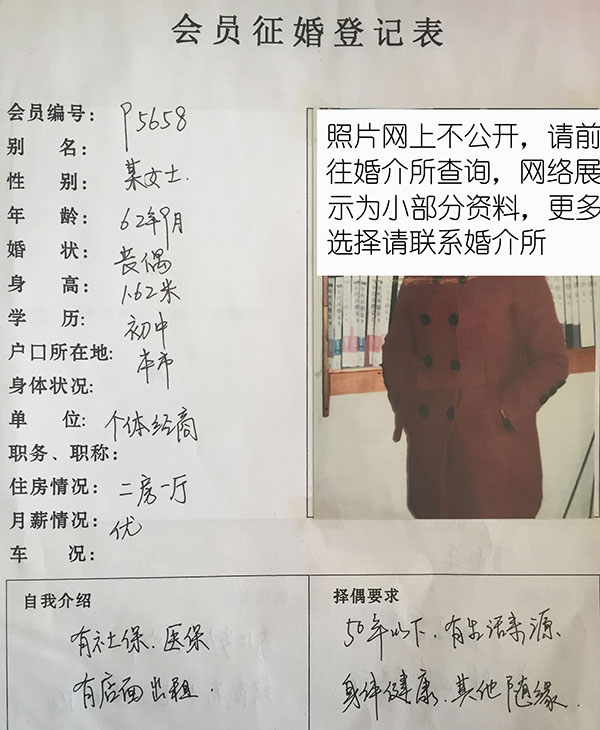 会员征婚登记表
会员编号: P5658
别 名:
性 别: 某女士.
年 龄: 62年9月
婚 状: 丧偶
身 高: 1.62米
学 历: 初中
户口所在地: 本市
身体状况:
单 位: 个体经商
职务、职称:
住房情况: 二房一厅
月薪情况: 优
车 况:
照片网上不公开，请前
往婚介所查询，网络展
示为小部分资料，更多
选择请联系婚介所
自我介绍
有社保.医保
有店面出租.
择偶要求
50年以下.有生活来源、
身体健康.其他随缘.